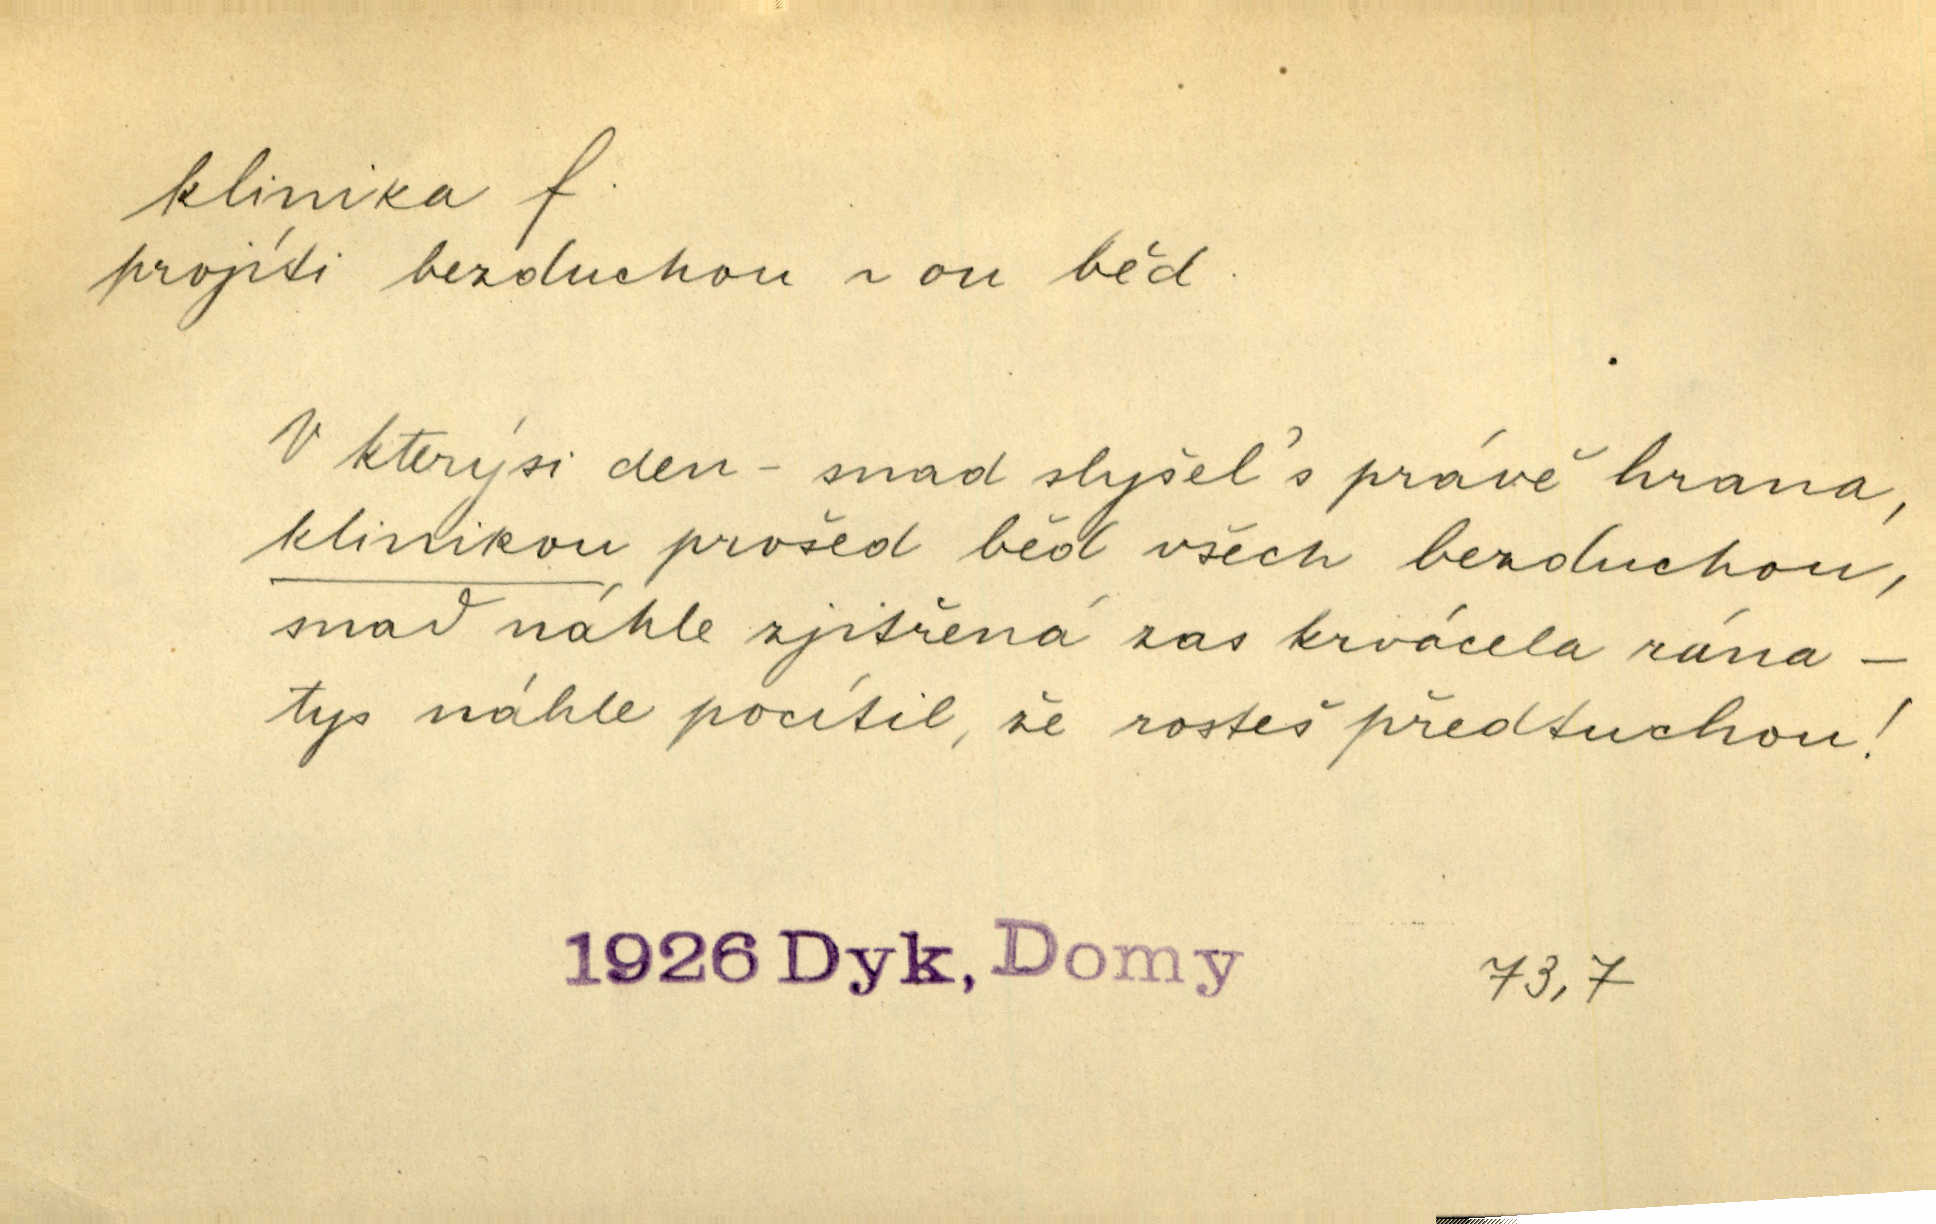 klinika f.
projíti bezduchou ~ou běd.
V kterýsi den - snad slyšel's právě hrana,
klinikou prošed běd všech bezduchou,
snad náhle zjitřená zas krvácela rána -
tys náhle pocítil, že rosteš předtuchou!
1926 Dyk, Domy 73,7